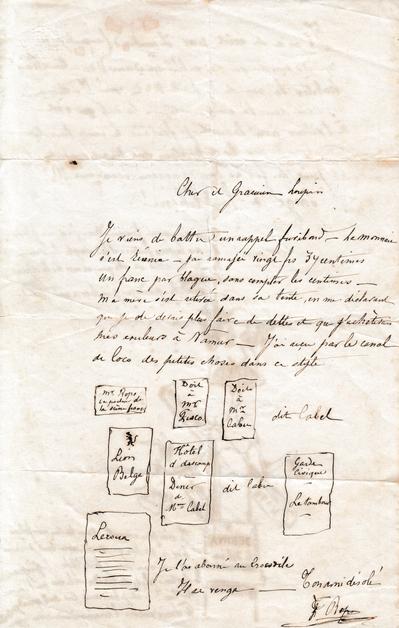 Cher et Gracieux Loupin
Je viens de battre un rappel furibond – la monnaie
s'est réunie – j'ai ramassé vingt frs 34 centimes
un franc par blague, sans compter les centimes –
ma mère s'est retirée dans sa tente, en me déclarant
que je ne devais plus faire de dettes et que j'achèterais
mes couleurs à Namur – J'ai reçu par le canal
de Loco des petites choses dans ce style
Mr Rops
la
Doit
à
Mr
Doit
à
Mr
Cabu
dit Cabel
Lion
Belge
Hôtel
d
Diner
à
Mme Cabel
dit Cabu
Garde
Civique
Le tambour
Leroux
Je l'ai abonné au Crocodile
Il se venge — Ton ami désolé
F Rops